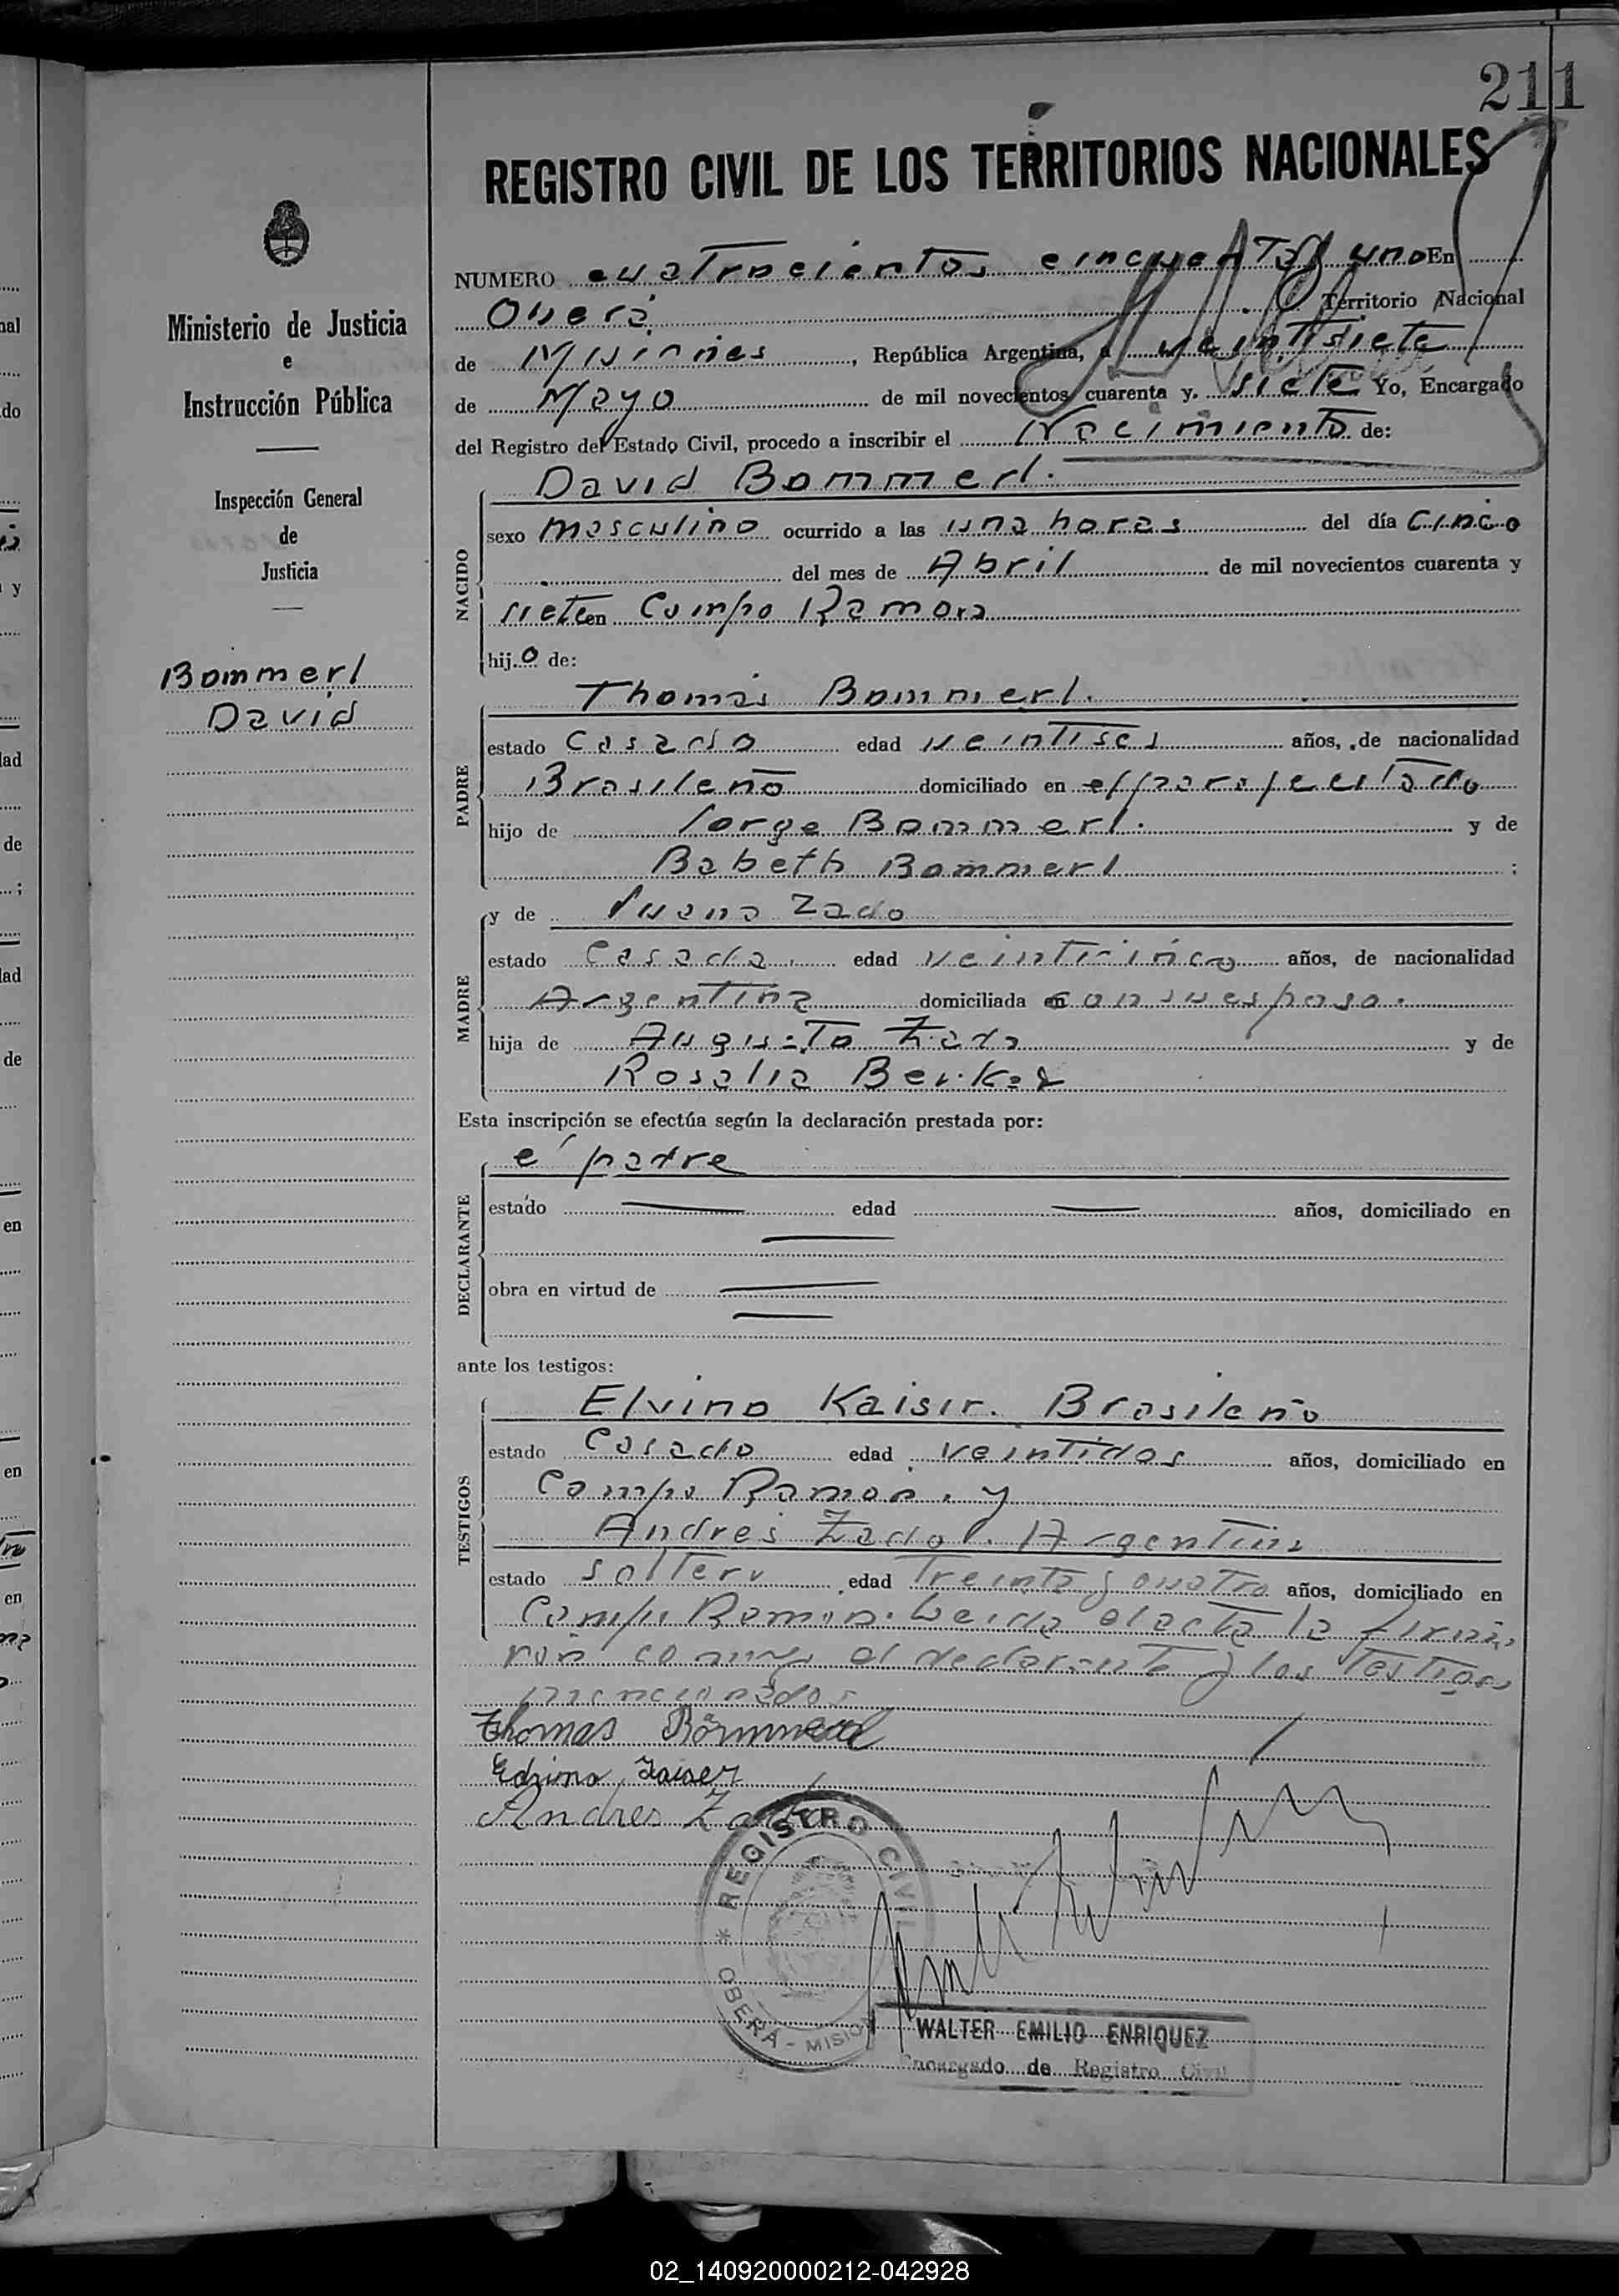 211
REGISTRO CIVIL DE LOS TERRITORIOS NACIONALES
Ministerio de Justicia
e
Instrucción Pública
Inspección General
de
Justicia
Bommerl
David
NUMERO cuatrocientos cincuenta y uno En
Oberá Territorio Nacional
de Misiones, República Argentina, a veintisiete
de Mayo de mil novecientos cuarenta y siete Yo, Encargado
del Registro del Estado Civil, procedo a inscribir el Nacimiento de:
NACIDO
David Bommerl.
sexo masculino ocurrido a las una horas del día cinco
del mes de Abril de mil novecientos cuarenta y
siete en Campo Ramon
hijo de:
PADRE
Thomas Bommerl.
estado Casado edad veintiseis años, de nacionalidad
Brasileño domiciliado en
hijo de Jorge Bommerl. y de
Babeth Bommerl ;
MADRE
y de Juana Zado
estado Casada edad veinticinco años, de nacionalidad
Argentina domiciliada en con su esposo.
hija de Augusto Zado y de
Rosalia
Esta inscripción se efectúa según la declaración prestada por:
DECLARANTE
el padre
estado edad años, domiciliado en
obra en virtud de
ante los testigos:
TESTIGOS
Elvino Kaisir. Brasileño
estado Casado edad veintidos años, domiciliado en
Campo Ramon. y
Andres Zado. Argentino
estado soltero edad Treinta y cuatro años, domiciliado en
Campo Ramon. Leida el acta la firma
ron conmigo el declarante y los Testigos
mencionados
Thomas Bömmerl
Edvino Kaiser
Andres Zado
REGISTRO CIVIL
OBERA - MISIONES
WALTER EMILIO ENRIQUEZ
Encargado de Registro Civil
02_140920000212-042928